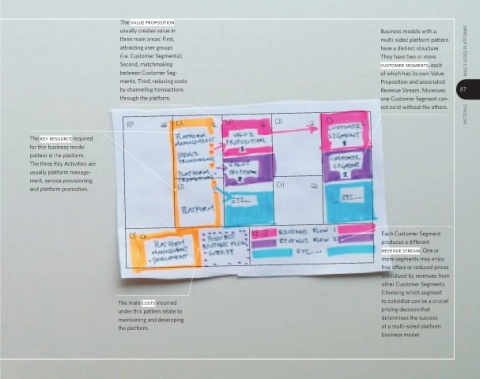 The VALUE PROPOSITION
usually creates value in
three main areas: First,
attracting user groups
(i.e. Customer Segments);
Second, matchmaking
between Customer Seg-
ments; Third, reducing costs
by channeling transactions
through the platform.
Business models with a
multi-sided platform pattern
have a distinct structure.
They have two or more
CUSTOMER SEGMENTS, each
of which has its own Value
Proposition and associated
Revenue Stream. Moreover,
one Customer Segment can-
not exist without the others.
MULTI-SIDED PLATFORMS
87
PATTERNS
The KEY RESOURCE required
for this business model
pattern is the platform.
The three Key Activities are
usually platform manage-
ment, service provisioning,
and platform promotion.
KP
KA
VP
CR
CS
PLATFORM
MANAGEMENT
SERVICE
PROVISIONING
PLATFORM
PROMOTION
VALUE
PROPOSITION
1
VALUE
PROPOSITION
2
ETC...
CUSTOMER
SEGMENT
1
CUSTOMER
SEGMENT
2
ETC...
KR
PLATFORM
CH
C$
PLATFORM
MANAGEMENT
+ DEVELOPMENT
REVENUE FLOW
SUBSIDY
R$
REVENUE FLOW 1
REVENUE FLOW 2
ETC...
Each Customer Segment
produces a different
REVENUE STREAM. One or
more segments may enjoy
free offers or reduced prices
subsidized by revenues from
other Customer Segments.
Choosing which segment
to subsidize can be a crucial
pricing decision that
determines the success
of a multi-sided platform
business model.
The main COSTS incurred
under this pattern relate to
maintaining and developing
the platform.